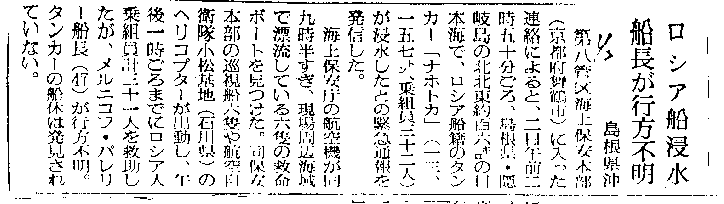 ロシア船浸水
船長が行方不明
島根県沖
第八管区海上保安本部
(京都府舞鶴市)に入った
連絡によると、二日午前二
時五十分ごろ、島根県・隠
岐島の北北東約百六㌔の日
本海で、ロシア船籍のタン
カー「ナホトカ」(一三、
一五七㌧、乗組員三十二人)
が浸水したとの緊急通報を
発信した。
海上保安庁の航空機が同
九時半すぎ、現場周辺海域
で漂流している六隻の救命
ボートを見つけた。同保安
本部の巡視船六隻や航空自
衛隊小松基地(石川県)の
ヘリコプターが出動し、午
後一時ごろまでにロシア人
乗組員計三十一人を救助し
たが、メルニコフ・バレリ
ー船長(47)が行方不明。
タンカーの船体は発見され
ていない。